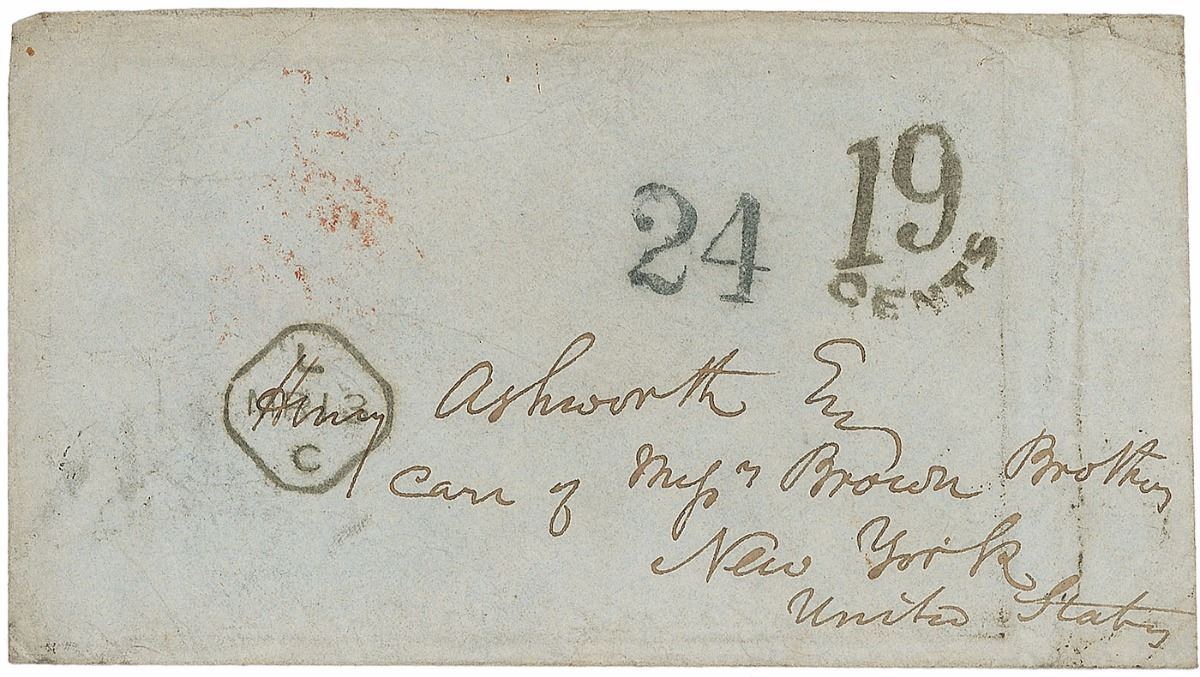 19
24
CENTS
L
C
Henry Ashworth Esq
Care of Messrs Brown Brothers
New York
United States